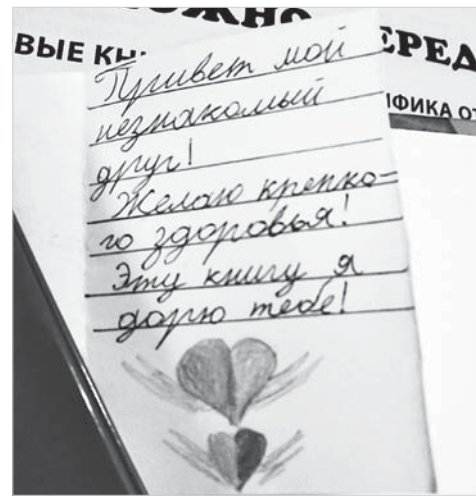 ВЫЕ
Привет мой
незнакомый
друг!
Желаю крепко-
го здоровья!
Эту книгу я
дарю тебе!